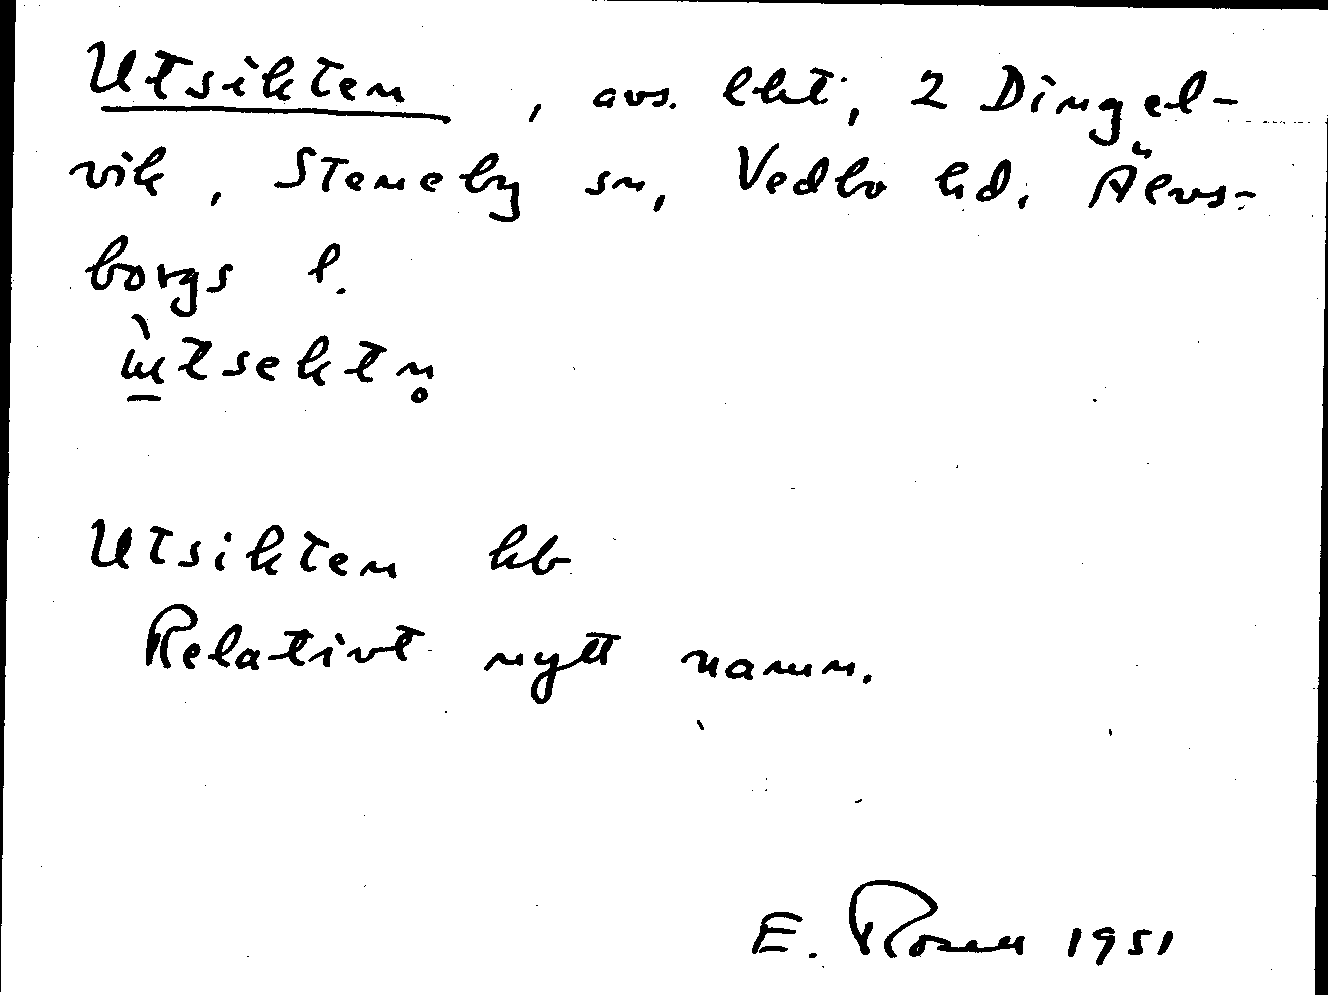 Utsikten, avs. lht, 2 Dingel-
vik, Steneby sn, Vedbo hd. Älvs-
borgs l.
ùtsektn̥
Utsikten kb
Relativt nytt namn.
E. Rosell 1951